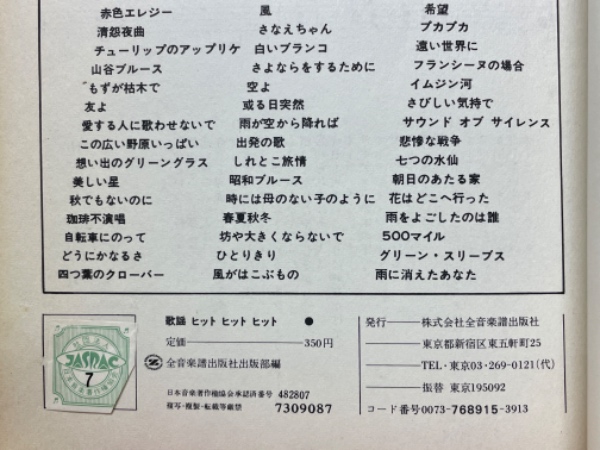 赤色エレジー　風　希望
清怨夜曲　さなえちゃん　プカプカ
チューリップのアップリケ　白いブランコ　遠い世界に
山谷ブルース　さよならをするために　フランシーヌの場合
もずが枯木で　空よ　イムジン河
友よ　或る日突然　さびしい気持で
愛する人に歌わせないで　雨が空から降れば　サウンド オブ サイレンス
この広い野原いっぱい　出発の歌　悲惨な戦争
想い出のグリーングラス　しれとこ旅情　七つの水仙
美しい星　昭和ブルース　朝日のあたる家
秋でもないのに　時には母のない子のように　花はどこへ行った
珈琲不演唱　春夏秋冬　雨をよごしたのは誰
自転車にのって　坊や大きくならないで　500マイル
どうにかなるさ　ひとりきり　グリーン・スリーブス
四つ葉のクローバー　風がはこぶもの　雨に消えたあなた
JASRAC
7
歌謡 ヒット ヒット ヒット ●
定価――350円
全音楽譜出版社出版部編
日本音楽著作権協会承認済番号 482807
複写・複製・転載等厳禁 7309087
発行――株式会社全音楽譜出版社
――東京都新宿区東五軒町25
――TEL・東京03・269-0121(代)
――振替 東京195092
コード番号0073-768915-3913